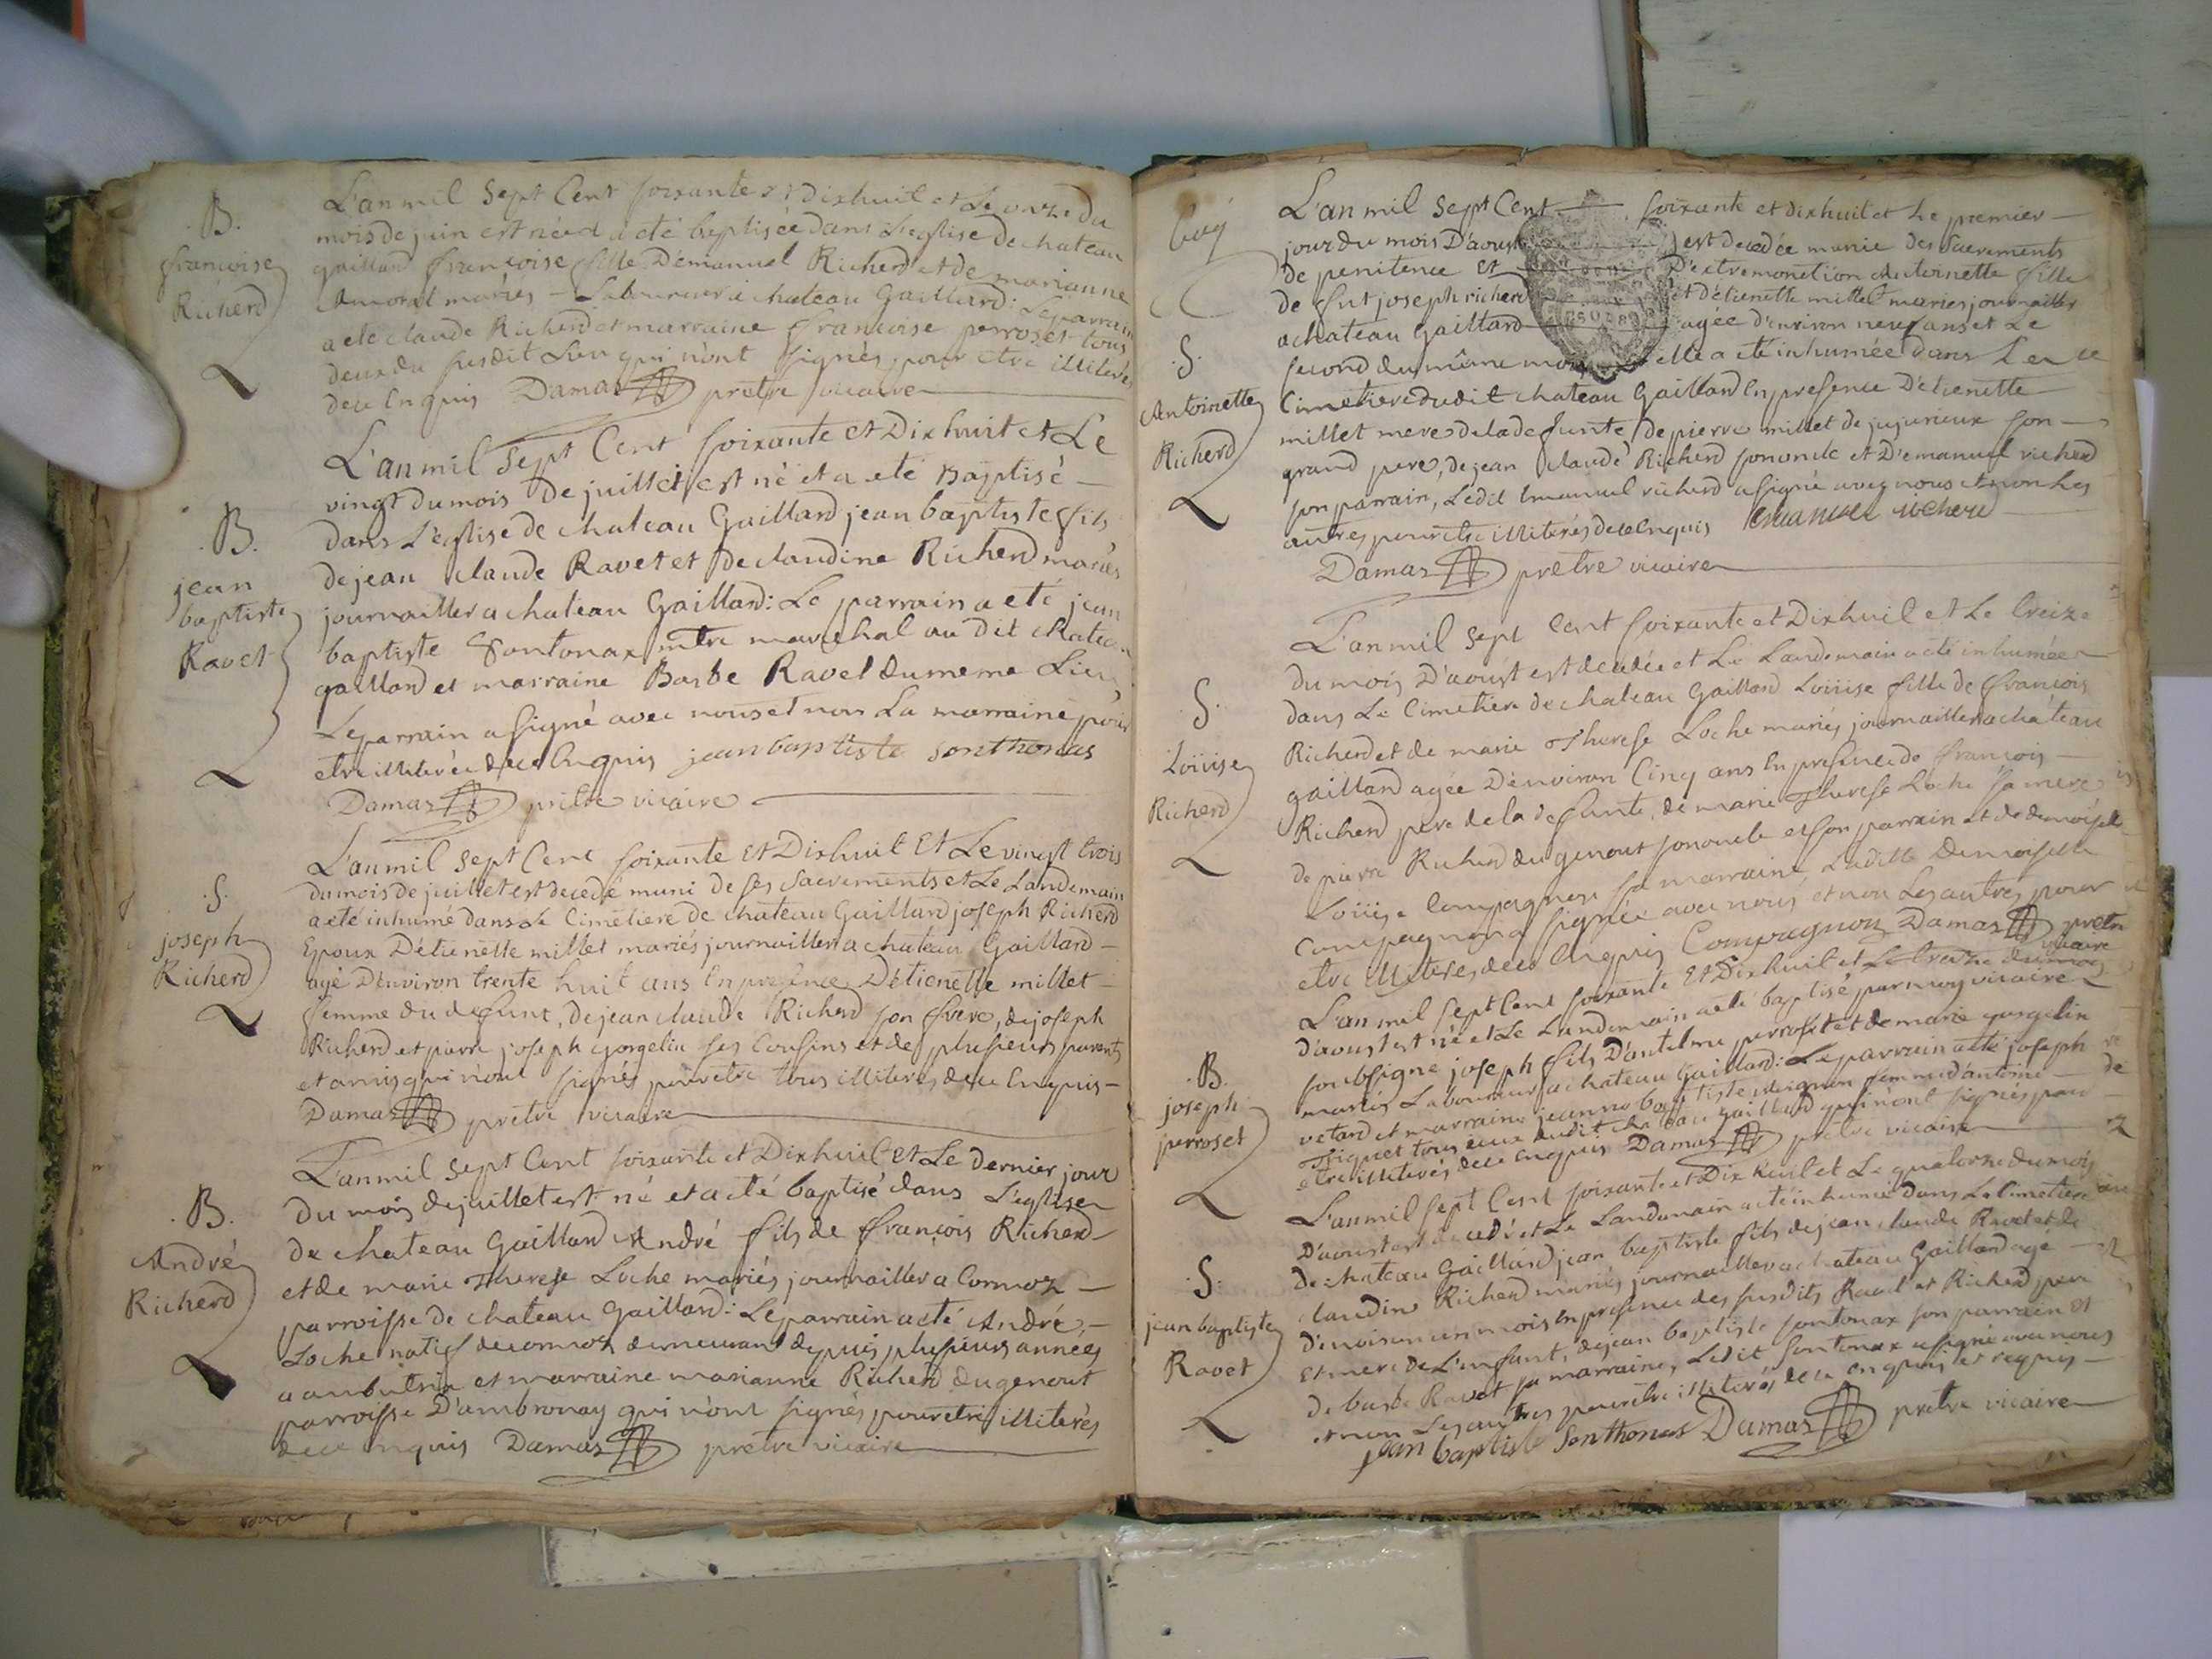 .B.
françoise
Richerd
L'an mil Sept Cent soixante et Dixhuit et Le onze du
mois de juin est née et a eté baptisée dans L'eglise de chateau
gaillard françoise fille D'emanuel Richerd et de marianne
mariés - Laboureur a chateau Gaillard: Le parrain
a eté claude Richerd et marraine francoise perroset tous
deux du susdit Lieu qui n'ont signés pour etre illiterés
de ce Enquis Damas prêtre vicaire
.B.
jean
baptiste
Ravet
L'an mil Sept Cent soixante et Dixhuit et Le
vingt du mois de juillet est né et a eté Baptisé
dans L'eglise de chateau Gaillard jean baptiste fils
de jean claude Ravet et de claudine Richerd mariés
journailler a chateau Gaillard: Le parrain a eté jean
baptiste Sontonax mtre marechal au dit chateau
gaillard et marraine Barbe Ravet du meme Lieu,
Le parrain a signé avec nous et non La marraine pour
etre illiterée de ce Enquis jean baptiste Sonthonas
Damas prêtre vicaire
.S.
joseph
Richerd
L'an mil Sept Cent soixante Et Dixhuit Et Le vingt trois
du mois de juillet est decedé muni de ses Sacrements et Le Landemain
a eté inhumé dans Le Cimetiere de chateau Gaillard joseph Richerd
Epoux D'etienette millet mariés journailler a chateau Gaillard
agé D'environ trente huit ans En presence D'etienette millet
femme du defunt, de jean claude Richerd son frere, de joseph
Richerd et pierre joseph gorgelin ses Cousins et de plusieurs parents
et amis qui n'ont signés pour etre tous illiterés de ce Enquis
Damas prêtre vicaire
.B.
André
Richerd
L'an mil Sept Cent soixante et Dixhuit et Le dernier jour
du mois de juillet est né et a eté baptisé dans L'eglise
de chateau Gaillard André fils de françois Richerd
et de marie Therese Loche mariés journailler a Cormoz
parroisse de chateau Gaillard: Le parrain a eté André
Loche natif de cormoz demeurant depuis plusieurs années
a ambutrix et marraine marianne Richerd du genout
parroisse D'ambronay qui n'ont signés pour etre illiterés
de ce enquis Damas prêtre vicaire
.S.
Antoinette
Richerd
L'an mil Sept Cent soixante et dixhuit et Le premier
jour du mois D'aoust est decedée munie des Sacrements
de penitence et D'extremonction Antoinette fille
de fut joseph richerd et d'etienette millet mariés journailler
a chateau Gaillard agée d'environ neuf ans et Le
second du même mois elle a eté inhumée dans Le
Cimetiere dudit chateau Gaillard En presence D'etienette
millet mere de la defunte, de pierre millet de jujurieux son
grand pere, de jean claude Richerd son oncle et D'emanuel richerd
son parrain, Ledit Emanuel richerd a signé avec nous et non Les
autres pour etre illiterés de ce Enquis Emanuel richerd
Damas prêtre vicaire
.S.
Loüise
Richerd
L'an mil Sept Cent soixante et Dixhuit et Le treize
du mois D'aoust est decedée et Le Landemain a eté inhumée
dans Le Cimetiere de chateau Gaillard Loüise fille de françois
Richerd et de marie Therese Loche mariés journailler a château
gaillard agée D'environ Cinq ans En presence de françois
Richerd pere de la defunte, de marie Therese Loche sa mere
de pierre Richerd du genout son oncle et son parrain et de demoiselle
Loüise Compagnon sa marraine, Laditte Demoiselle
Compagnon a signée avec nous et non Les autres pour
etre illiterés de ce Enquis Compagnon Damas prêtre
vicaire
.B.
joseph
perroset
L'an mil Sept Cent soixante Et Dixhuit et Le treize du mois
d'aoust est né et Le Landemain a eté baptisé par moy vicaire
soubsigné joseph fils D'antelme perroset et de marie gorgelin
mariés Laboureur a chateau Gaillard: Le parrain a eté joseph
vetard et marraine jeanne baptiste femme d'antoine
tous deux dudit chateau gaillard qui n'ont signés pour
etre illiterés de ce enquis Damas prêtre vicaire
.S.
jean baptiste
Ravet
L'an mil Sept Cent soixante et Dixhuit et Le quatorze du mois
D'aoust est decedé et Le Landemain a eté inhumé dans Le Cimetiere
de chateau Gaillard jean baptiste fils de jean claude Ravet et de
claudine Richerd mariés journailler a chateau Gaillard agé
d'environ un mois En presence des susdits Ravet et Richerd pere
et mere de L'enfant, de jean baptiste Sontonax son parrain et
de barbe Ravet sa marraine, Ledit Sontonax a signé avec nous
et non Les autres pour etre illiterés de ce enquis et requis
jean baptiste Sonthonas Damas prêtre vicaire